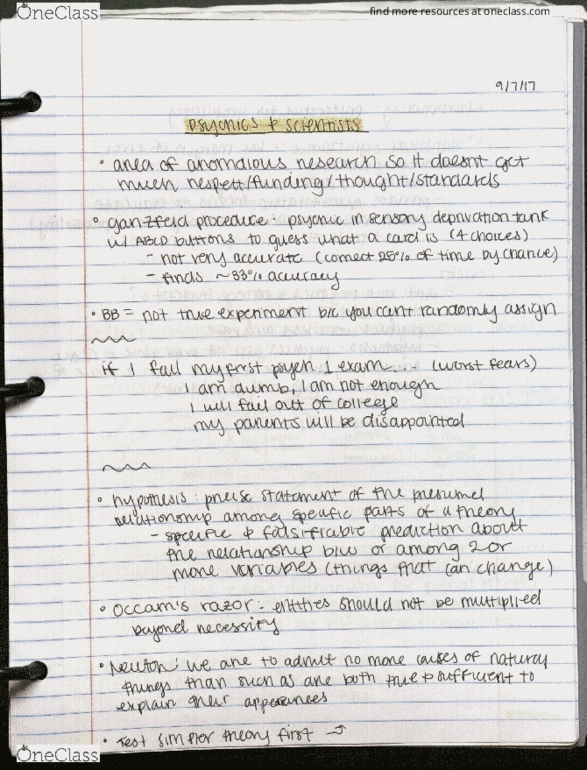 OneClass
find more resources at oneclass.com
9/7/17
Psychics & scientists
• area of anomalous research so it doesnt get
much respect/funding/thought/standards
• ganzfeld procedure: psychic in sensory deprivation tank
w/ ABCD buttons to guess what a card is (4 choices)
- not very accurate (correct 25% of time by chance)
- finds ~33% accuracy
• BB = not true experiment b/c you cant randomly assign
if I fail my first psych 1 exam... (worst fears)
I am dumb, I am not enough
I will fail out of college
my parents will be disappointed
• hypothesis: precise statement of the presumed
relationship among specific parts of a theory
- specific & falsifiable prediction about
the relationship b/w or among 2 or
more variables (things that can change)
• Occam's razor: entities should not be multiplied
beyond necessity
• Newton: we are to admit no more causes of natural
things than such as are both true & sufficient to
explain their appearances
• Test simpler theory first →
OneClass